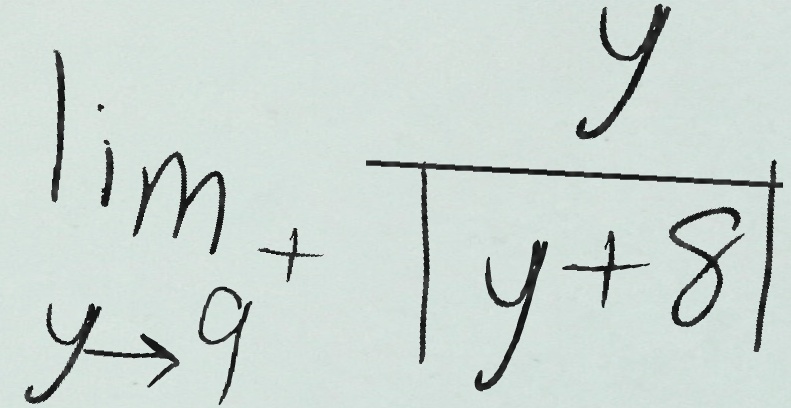 \lim_{y \to 9^+} \frac{y}{|y+8|}